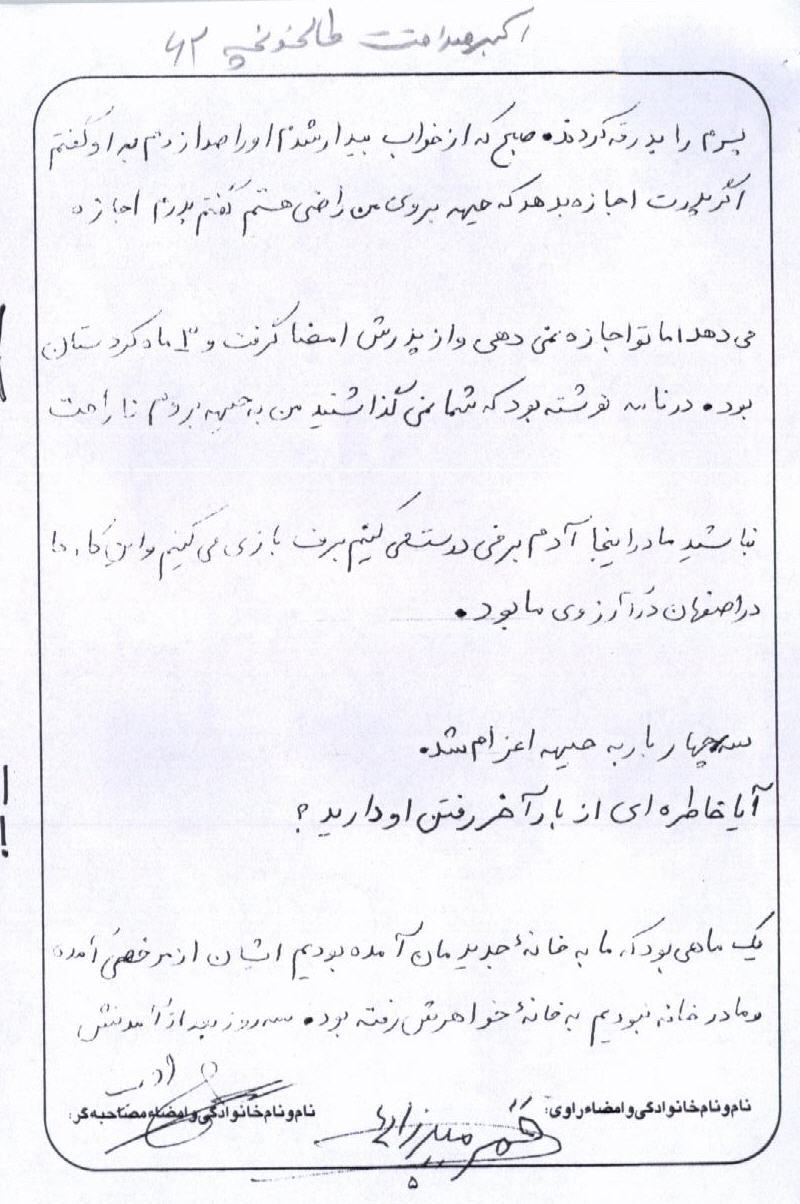 اکبر صداقت طالخونچه ۶۲
پسرم را بدرقه کردند. صبح که از خواب بیدار شدم او را صدا زدم به او گفتم
اگر پدرت اجازه بدهد که جبهه بروی من راضی هستم گفتم پدرم اجازه
می دهد اما تو اجازه نمی دهی و از پدرش امضا گرفت و ۳ ماه کردستان
بود. در نامه نوشته بود که شما نمی گذاشتید من به جبهه بروم ناراحت
نباشید ما در اینجا آدم برفی درست می کنیم برف بازی می کنیم و این کارها
در اصفهان در آرزوی ما بود.
سه چهار بار به جبهه اعزام شد.
آیا خاطره ای از بار آخر رفتن او دارید؟
یک ماهی بود که ما به خانهٔ جدیدمان آمده بودیم ایشان از مرخصی آمده
و ما در خانه نبودیم به خانهٔ خواهرش رفته بود. سه روز بعد از آمدنش
نام و نام خانوادگی و امضاء راوی:
نام و نام خانوادگی و امضاء مصاحبه گر:
۵